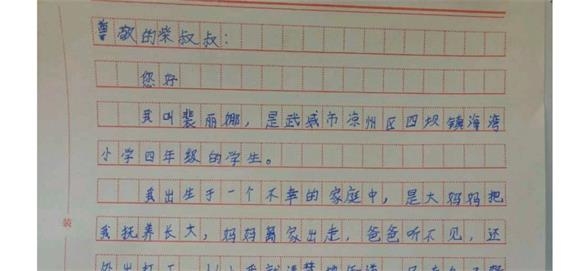 尊敬的荣叔叔：
您好
我叫裴丽娜，是武威市凉州区四坝镇海湾
小学四年级的学生。
我出生于一个不幸的家庭中，是大妈妈把
我抚养长大，妈妈离家出走，爸爸听不见，还
装